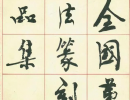 全国第
法篆刻
品集